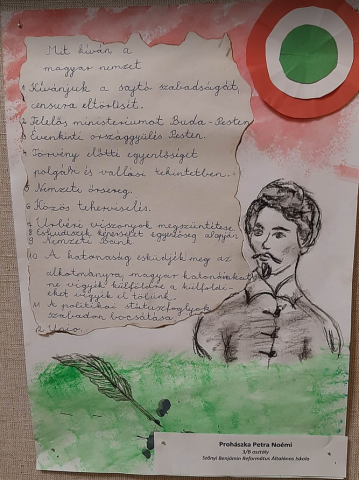 Mit kíván a
magyar nemzet
1 Kívánjuk a sajtó szabadságát,
censura eltörlését.
2 Felelős ministeriumot Buda-Pesten
3 Évenkinti országgyülés Pesten.
4 Törvény előtti egyenlőséget
polgári és vallási tekintetben.
5 Nemzeti őrsereg.
6 Közös teherviselés.
7 Urbéri viszonyok megszüntetése.
8 Esküdtszék képviselet egyenlőség alapján
9 Nemzeti Bank
10 A katonaság esküdjék meg az
alkotmányra, magyar katonáinkat
ne vigyék külföldre a külföldi-
eket vigyék el tőlünk.
11 A politikai státusfoglyok
szabadon bocsátása
12 Unio.
Prohászka Petra Noémi
3/B osztály
Szőnyi Benjámin Református Általános Iskola